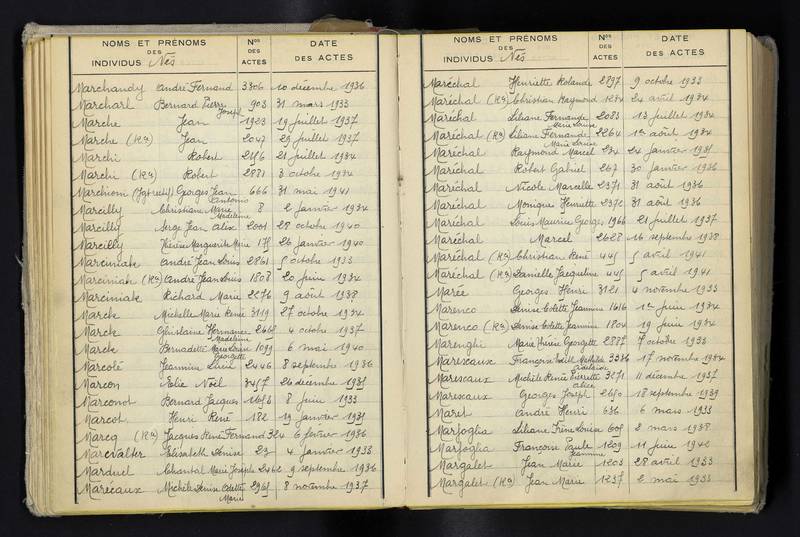 NOMS ET PRÉNOMS DES INDIVIDUS Nés | Nos DES ACTES | DATE DES ACTES
Marchandy André Fernand 3306 10 décembre 1936
Marcharl Bernard Pierre Joseph 903 31 mars 1933
Marche Jean 1923 19 juillet 1937
Marche (Rn) Jean 2047 29 juillet 1937
Marchi Robert 21 juillet 1934
Marchi (Rn) Robert 2881 3 octobre 1934
Marchioni Georges Jean Antonio 666 31 mai 1941
Marcilly Christiane Marie Madeleine 8 2 janvier 1934
Marcilly Serge Jean Alix 2001 28 octobre 1940
Marcilly Thérèse Marguerite Marie 26 janvier 1940
Marciniak André Jean Louis 2861 5 octobre 1933
Marciniak (Rn) André Jean Louis 1808 20 juin 1934
Marciniak Richard Marie 2276 9 août 1938
Marck Michelle Marie Renée 3119 27 octobre 1934
Marck Ghislaine Hermance Madeleine 4 octobre 1937
Marck Bernadette Marie Louise Georgette 1099 6 mai 1940
Marcoté Jeannine Lucie 2446 8 septembre 1936
Marcon Noël 3457 26 décembre 1931
Marconot Bernard Jacques 8 juin 1933
Marcot Henri René 182 19 janvier 1931
Marcq (Rn) Jacques René Fernand 324 6 février 1936
Marcvalter Elisabeth Denise 23 4 janvier 1938
Marduel Chantal Marie Joseph 2462 9 septembre 1936
Marécaux Michèle Denise Odette Marie 2965 8 novembre 1937
NOMS ET PRÉNOMS DES INDIVIDUS Nés | Nos DES ACTES | DATE DES ACTES
Maréchal Henriette Rolande 2897 9 octobre 1933
Maréchal (Rn) Christian Raymond 1234 24 avril 1934
Maréchal Liliane Fernande Marie Louise 2083 13 juillet 1934
Maréchal (Rn) Liliane Fernande Marie Louise 2264 1er août 1934
Maréchal Raymond Marcel 234 24 janvier 1931
Maréchal Robert Gabriel 267 30 janvier 1936
Maréchal Nicole Marcelle 2371 31 août 1936
Maréchal Monique Henriette 2372 31 août 1936
Maréchal Louis Maurice Georges 1966 21 juillet 1937
Maréchal Marcel 2628 16 septembre 1938
Maréchal (Rn) Christian René 445 5 avril 1941
Maréchal (Rn) Danielle Jacqueline 445 5 avril 1941
Marée Georges Henri 3121 4 novembre 1933
Marenco Denise Colette Jeannine 1616 1er juin 1934
Marenco (Rn) Denise Colette Jeannine 1804 19 juin 1934
Marenghi Marie Thérèse Georgette 2887 7 octobre 1933
Marescaux Françoise Edith Mathilde Adélaïde 3336 17 novembre 1934
Marescaux Michèle Renée Pierrette Alice 3271 11 décembre 1937
Marescaux Georges Joseph 2650 18 septembre 1939
Maret André Henri 636 6 mars 1933
Marfoglia Liliane Irène Louise 605 2 mars 1938
Marfoglia Françoise Paule Jeannine 1209 11 juin 1942
Margalet Jean Marie 1203 28 avril 1933
Margalet (Rn) Jean Marie 1237 2 mai 1933